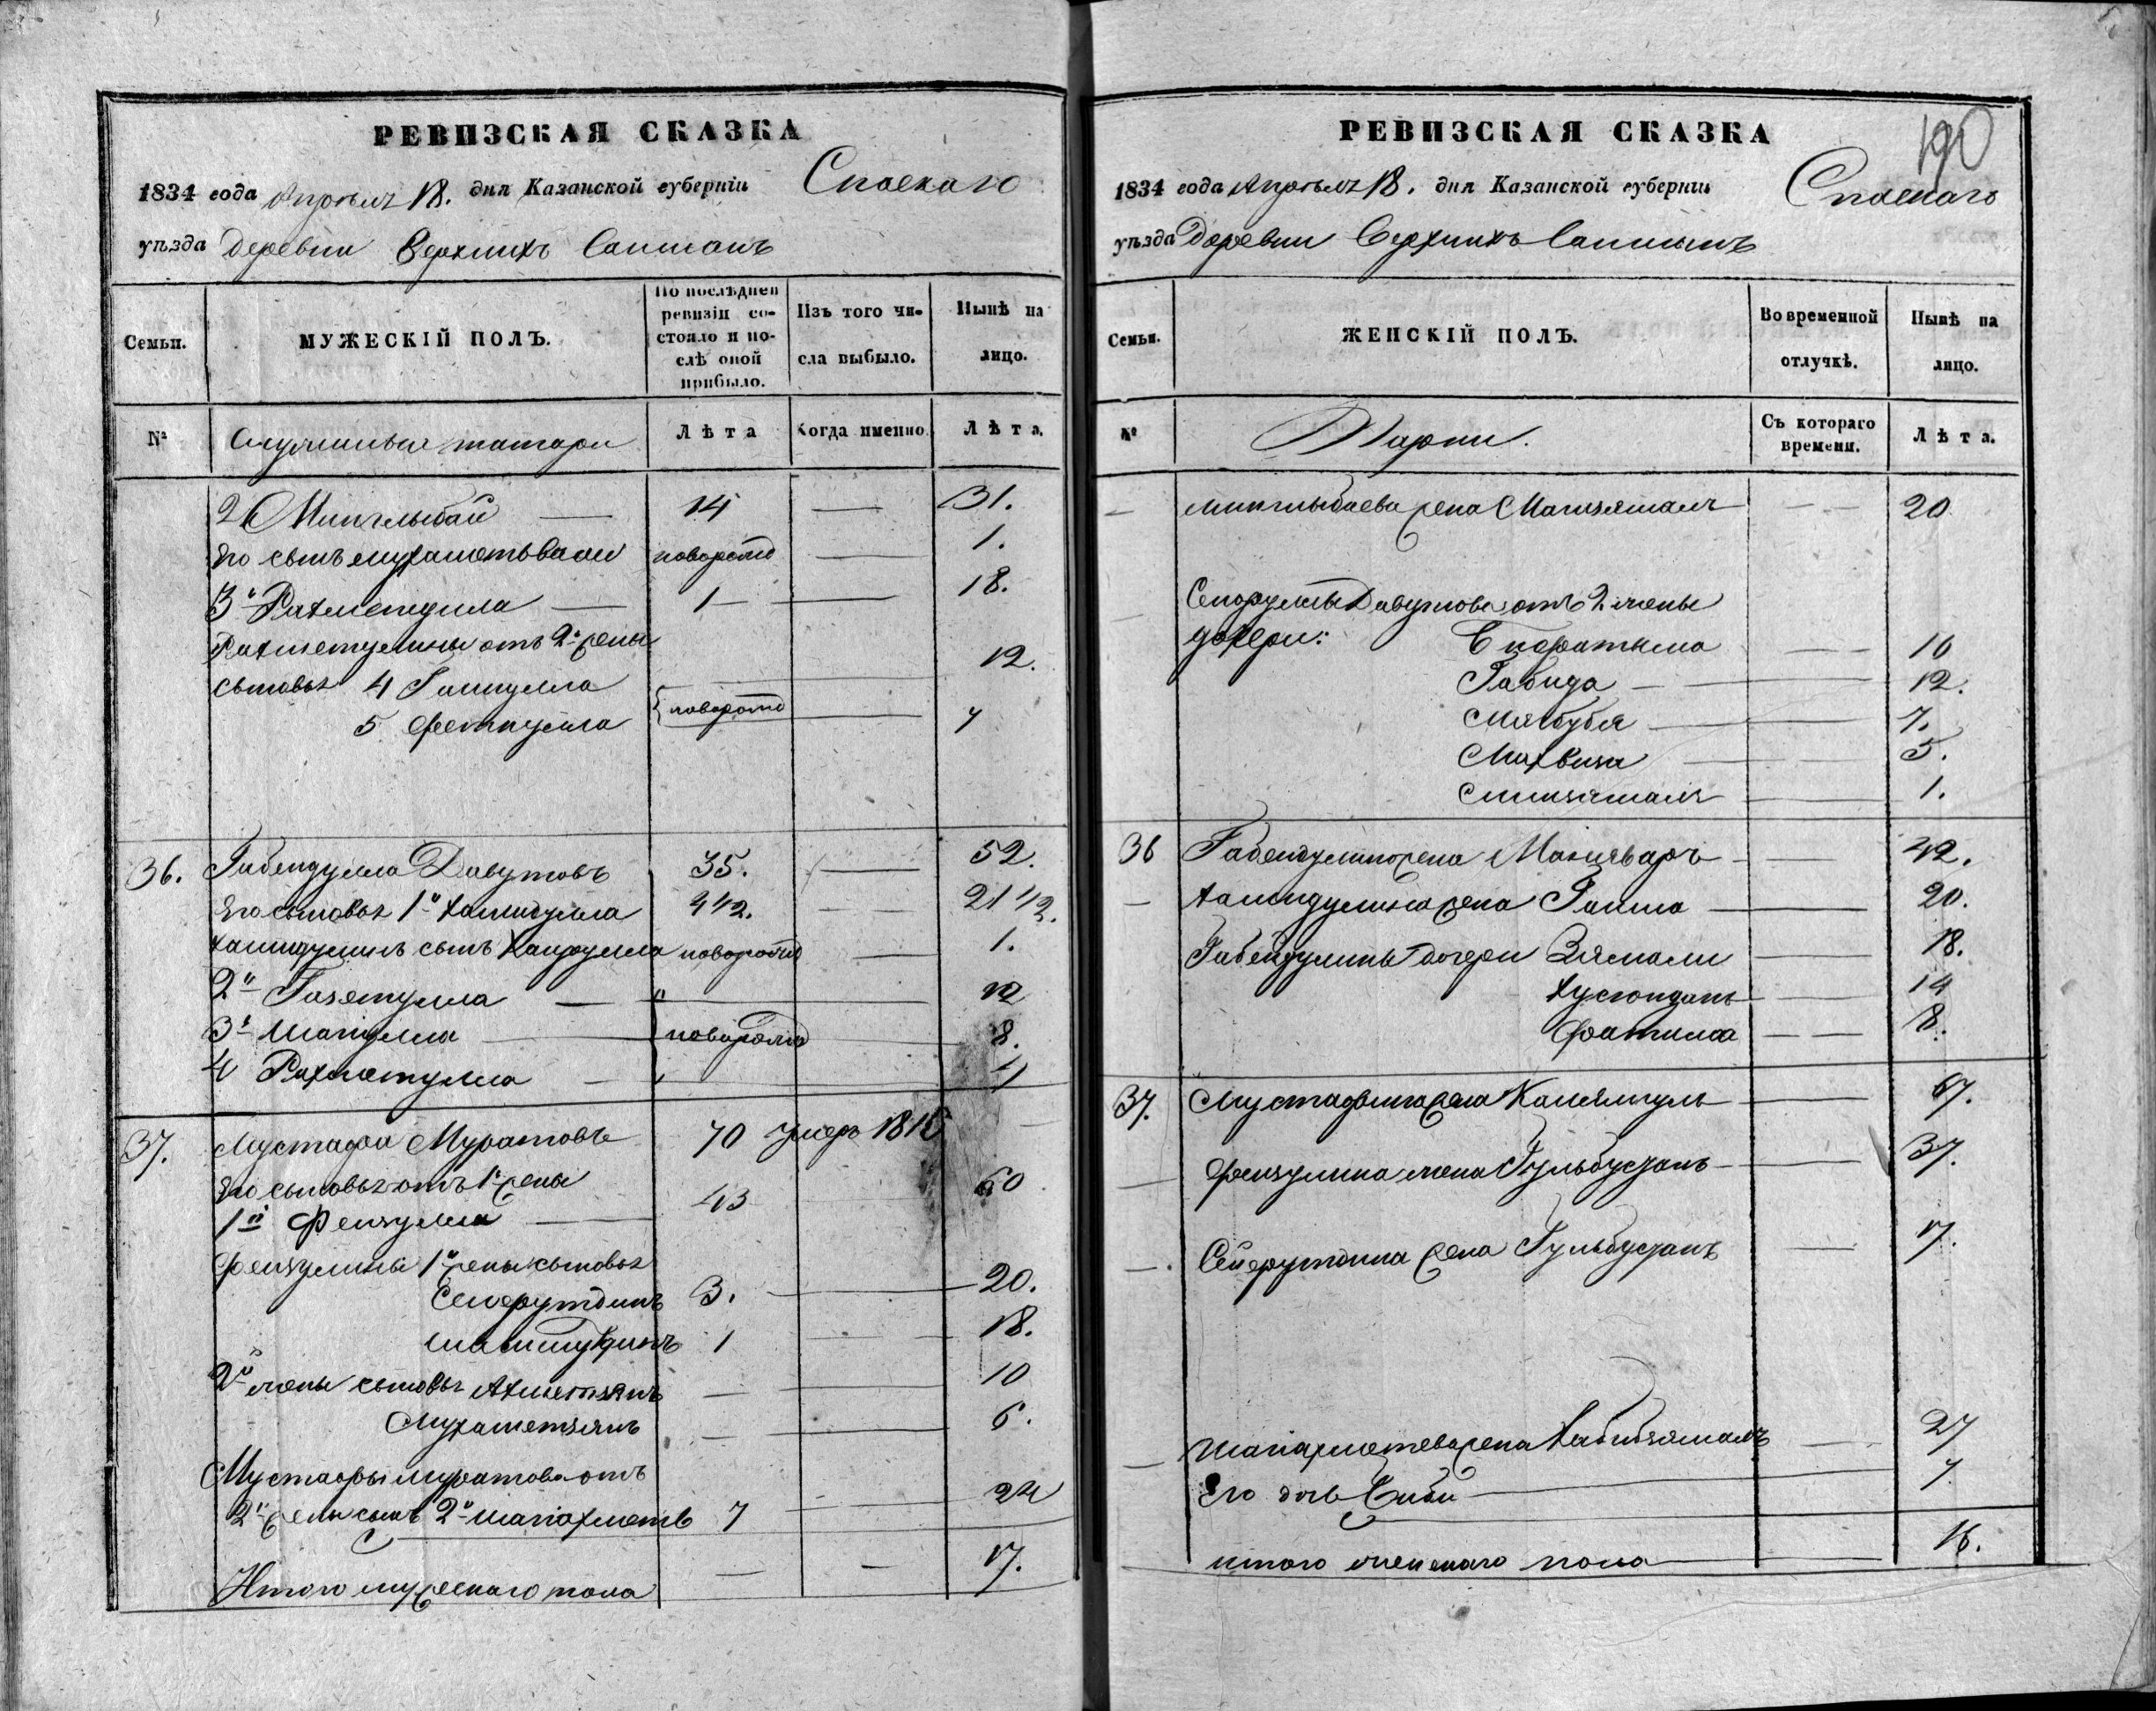 РЕВИЗСКАЯ СКАЗКА
1834 года Апреля 18. дня Казанской губерніи Спаскаго
уѣзда деревни Верхнихъ
Семьи.
МУЖЕСКІЙ ПОЛЪ.
По послѣдней ревизіи состояло и послѣ оной прибыло.
Изъ того числа выбыло.
Нынѣ на лицо.
№
Служилыя татары
Лѣта
Когда именно.
Лѣта.
2 Мингльбай — 14 — 31.
Его сынъ Мухаметьвали новорожд — 1.
3й Рахметулла — 1 — 18.
Рахметулины отъ 2й жены
сыновья 4 — 12.
5 Фетхулла { новорожд — 7
36. Габейдулла Давутовъ 35. — 52.
Его сыновья 1й Хамидулла 4 1/2. — — 21 1/2.
Хамидулинъ сынъ Хайрулла новорожд — 1.
2й Гизетулла — " — 12
3й Шагиулла — новорожд 8.
4 Рахметулла —
37. Мустафа Муратовъ 70 умеръ 1816 —
Его сыновья отъ 1й жены
1й Фейзулла — 43 60
Фейзулины 1й жены сыновья
Сейфутдинъ 3. — 20.
1 — 18.
2й жены сыновья Ахметзянъ — — 10
Мухаметзянъ — — 6.
Мустафы Муратова отъ
2й жены сынъ 2й Шагіахметь 7 — 24
Итого мужескаго пола — — 17.
190
РЕВИЗСКАЯ СКАЗКА
1834 года Апреля 18. дня Казанской губерніи Спаскаго
уѣзда деревни Верхнихъ
Семьи.
ЖЕНСКІЙ ПОЛЪ.
Во временной отлучкѣ.
Нынѣ на лицо.
№
Съ котораго времени.
Лѣта.
— Минглыбаева жена Магизямалъ — — 20
Давутова отъ 2 жены
дочери: Бибфатыма — — 16
Габида — 12.
Мягбубя — 7.
Махвиза — 5.
— 1.
36 Габейдулина жена — 42.
— Хамидулина жена — 20.
Габейдулины дочери Зямали — 18.
— 14
Фатима — — 8.
37. Мустафина жена — 67.
— Фейзулина жена Гульбустанъ — 37.
— Сейфутдина жена Гульбустанъ — 17.
— Шагіахметева жена Хабибзямалъ — 27
Его дочь Биби — 7.
итого женскаго пола — 16.